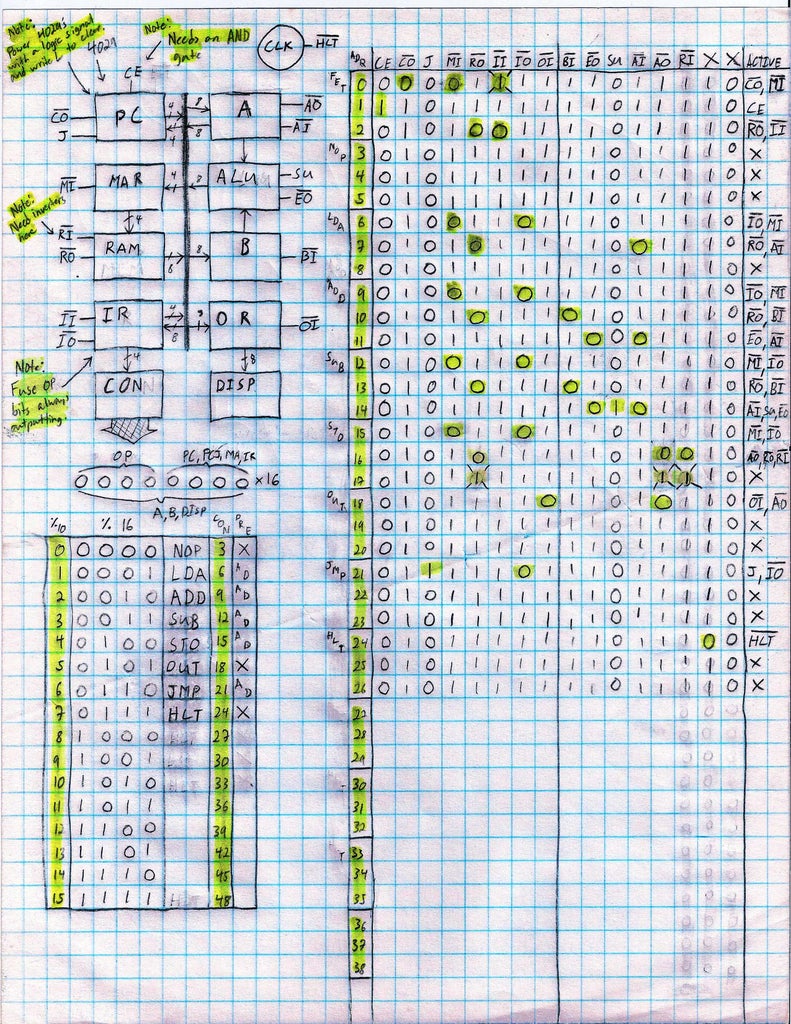 Note:
Power 4029's
with a logic signal
and write L to clear.
4029
Note:
Needs an AND
gate
CE
CLK
H̅L̅T̅
C̅O̅
J
PC
4
4
8
8
A
A̅O̅
A̅I̅
M̅I̅
MAR
4
8
ALU
SU
E̅O̅
Note:
Need inverters
here
4
R̅I̅
R̅O̅
RAM
8
8
B
B̅I̅
I̅I̅
I̅O̅
IR
4
8
8
OR
O̅I̅
Note:
Fuse OP
bits always
outputting.
4
CON
8
DISP
OP
PC, PCJ, MA, IR
0 0 0 0 0 0 0 0 ×16
A, B, DISP
%10 % 16 CON PRE
0 0 0 0 0 NOP 3 X
1 0 0 0 1 LDA 6 AD
2 0 0 1 0 ADD 9 AD
3 0 0 1 1 SUB 12 AD
4 0 1 0 0 STO 15 AD
5 0 1 0 1 OUT 18 X
6 0 1 1 0 JMP 21 AD
7 0 1 1 1 HLT 24 X
8 1 0 0 0 27
9 1 0 0 1 30
10 1 0 1 0 33
11 1 0 1 1 36
12 1 1 0 0 39
13 1 1 0 1 42
14 1 1 1 0 45
15 1 1 1 1 48
ADR CE C̅O̅ J M̅I̅ R̅O̅ I̅I̅ I̅O̅ O̅I̅ B̅I̅ E̅O̅ SU A̅I̅ A̅O̅ R̅I̅ X X ACTIVE
FET 0 0 0 0 0 1 1 1 1 1 1 0 1 1 1 1 0 C̅O̅, M̅I̅
1 1 1 0 1 1 1 1 1 1 1 0 1 1 1 1 0 CE
2 0 1 0 1 0 0 1 1 1 1 0 1 1 1 1 0 R̅O̅, I̅I̅
NOP 3 0 1 0 1 1 1 1 1 1 1 0 1 1 1 1 0 X
4 0 1 0 1 1 1 1 1 1 1 0 1 1 1 1 0 X
5 0 1 0 1 1 1 1 1 1 1 0 1 1 1 1 0 X
LDA 6 0 1 0 0 1 1 0 1 1 1 0 1 1 1 1 0 I̅O̅, M̅I̅
7 0 1 0 1 0 1 1 1 1 1 0 0 1 1 1 0 R̅O̅, A̅I̅
8 0 1 0 1 1 1 1 1 1 1 0 1 1 1 1 0 X
ADD 9 0 1 0 0 1 1 0 1 1 1 0 1 1 1 1 0 I̅O̅, M̅I̅
10 0 1 0 1 0 1 1 1 0 1 0 1 1 1 1 0 R̅O̅, B̅I̅
11 0 1 0 1 1 1 1 1 1 0 0 0 1 1 1 0 E̅O̅, A̅I̅
SUB 12 0 1 0 0 1 1 0 1 1 1 0 1 1 1 1 0 M̅I̅, I̅O̅
13 0 1 0 1 0 1 1 1 0 1 0 1 1 1 1 0 R̅O̅, B̅I̅
14 0 1 0 1 1 1 1 1 1 0 1 0 1 1 1 0 A̅I̅, SU, E̅O̅
STO 15 0 1 0 0 1 1 0 1 1 1 0 1 1 1 1 0 M̅I̅, I̅O̅
16 0 1 0 1 0 1 1 1 1 1 0 1 0 0 1 0 A̅O̅, R̅O̅, R̅I̅
17 0 1 0 1 1 1 1 1 1 1 0 1 1 1 1 0 X
OUT 18 0 1 0 1 1 1 1 0 1 1 0 1 0 1 1 0 O̅I̅, A̅O̅
19 0 1 0 1 1 1 1 1 1 1 0 1 1 1 1 0 X
20 0 1 0 1 1 1 1 1 1 1 0 1 1 1 1 0 X
JMP 21 0 1 1 1 1 1 0 1 1 1 0 1 1 1 1 0 J, I̅O̅
22 0 1 0 1 1 1 1 1 1 1 0 1 1 1 1 0 X
23 0 1 0 1 1 1 1 1 1 1 0 1 1 1 1 0 X
HLT 24 0 1 0 1 1 1 1 1 1 1 0 1 1 1 0 0 H̅L̅T̅
25 0 1 0 1 1 1 1 1 1 1 0 1 1 1 1 0 X
26 0 1 0 1 1 1 1 1 1 1 0 1 1 1 1 0 X
27
28
29
30
31
32
33
34
35
36
37
38